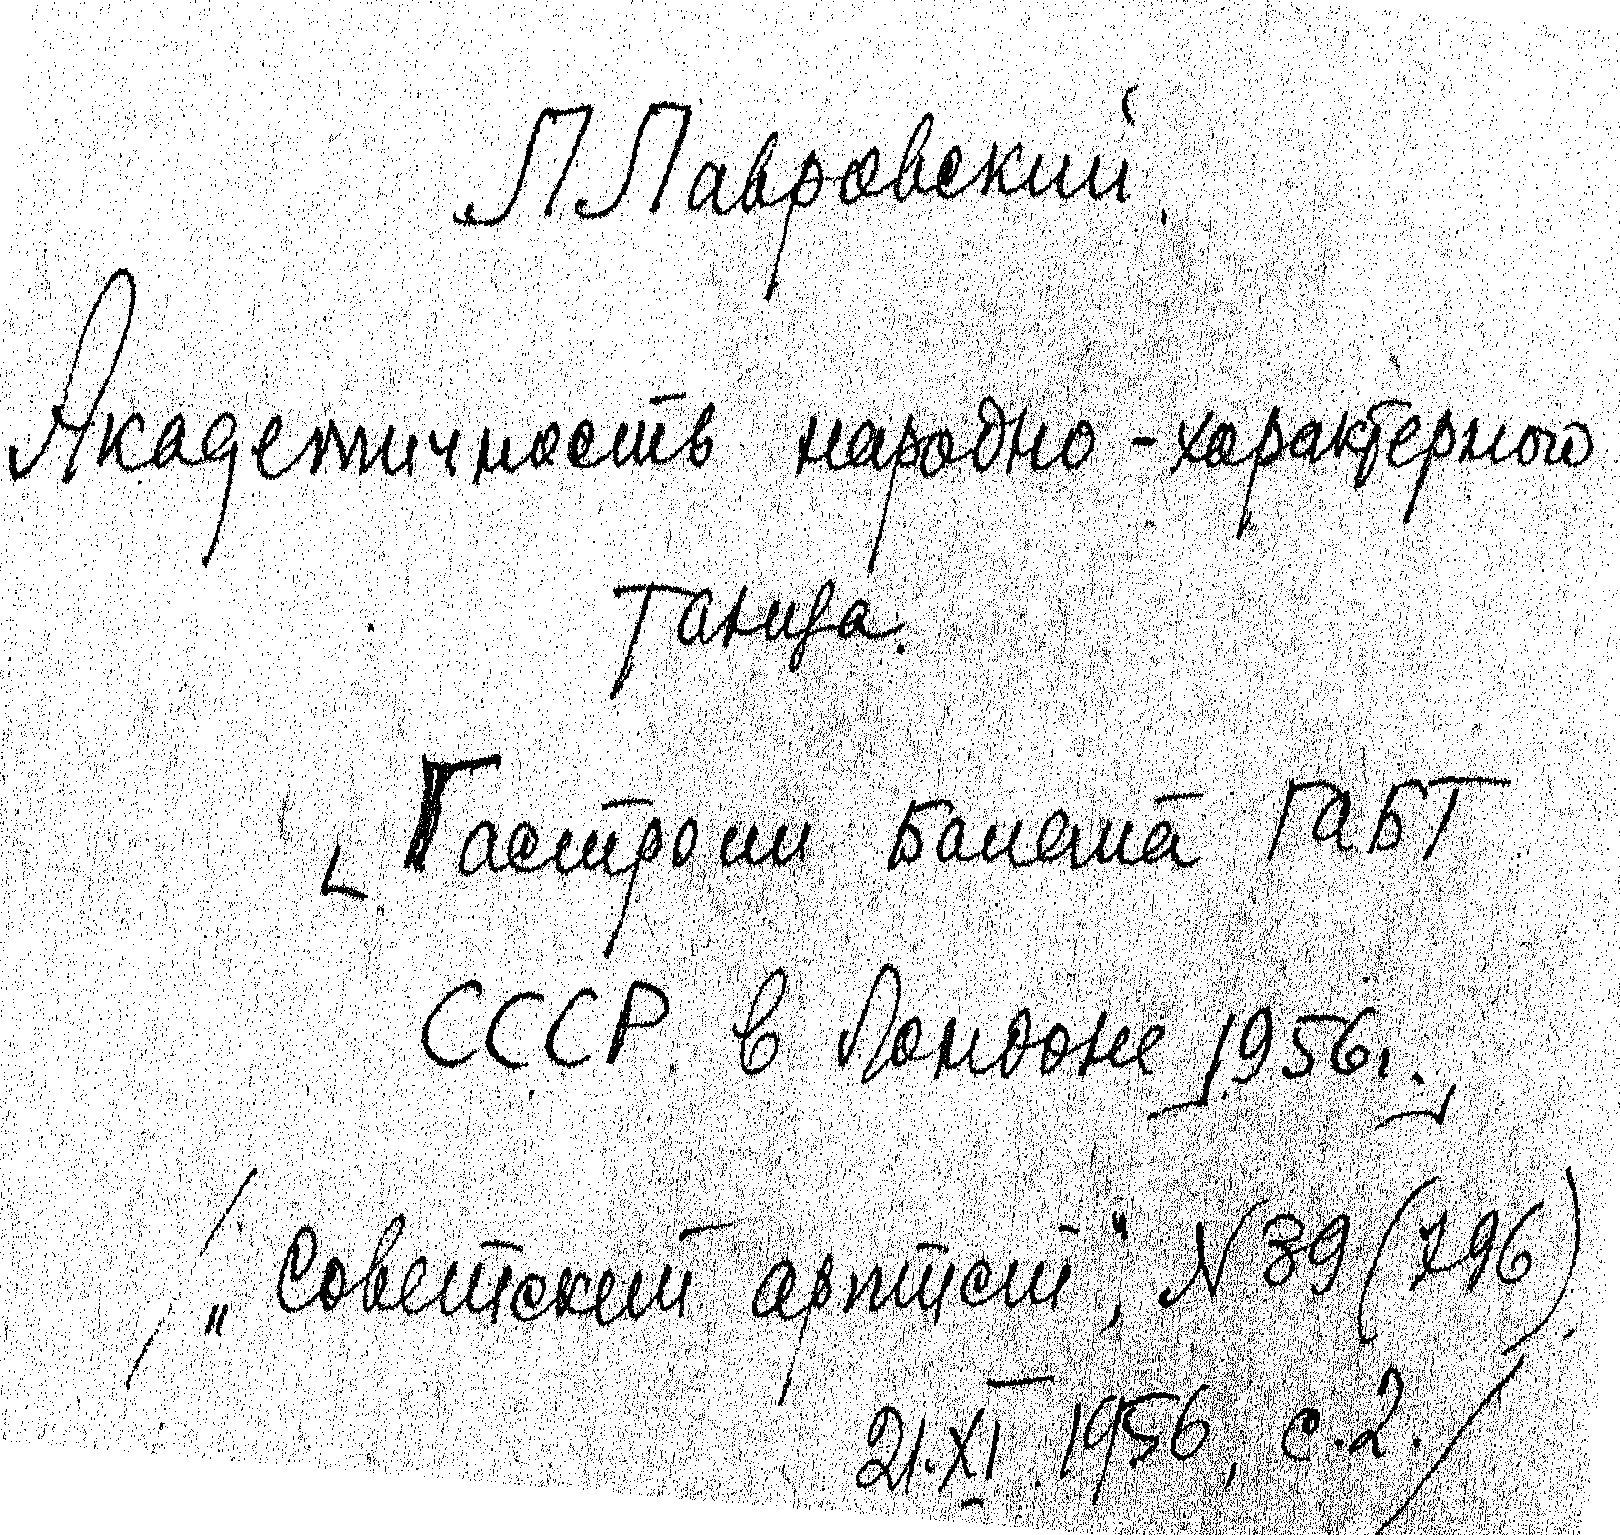 Л Лавровский.
Академичность народно-характерного
танца.
[Гастроли балета ГАБТ
СССР в Лондоне 1956г.]
/„Советский артист“, N 39 (796)
21.XI.1956, с.2./